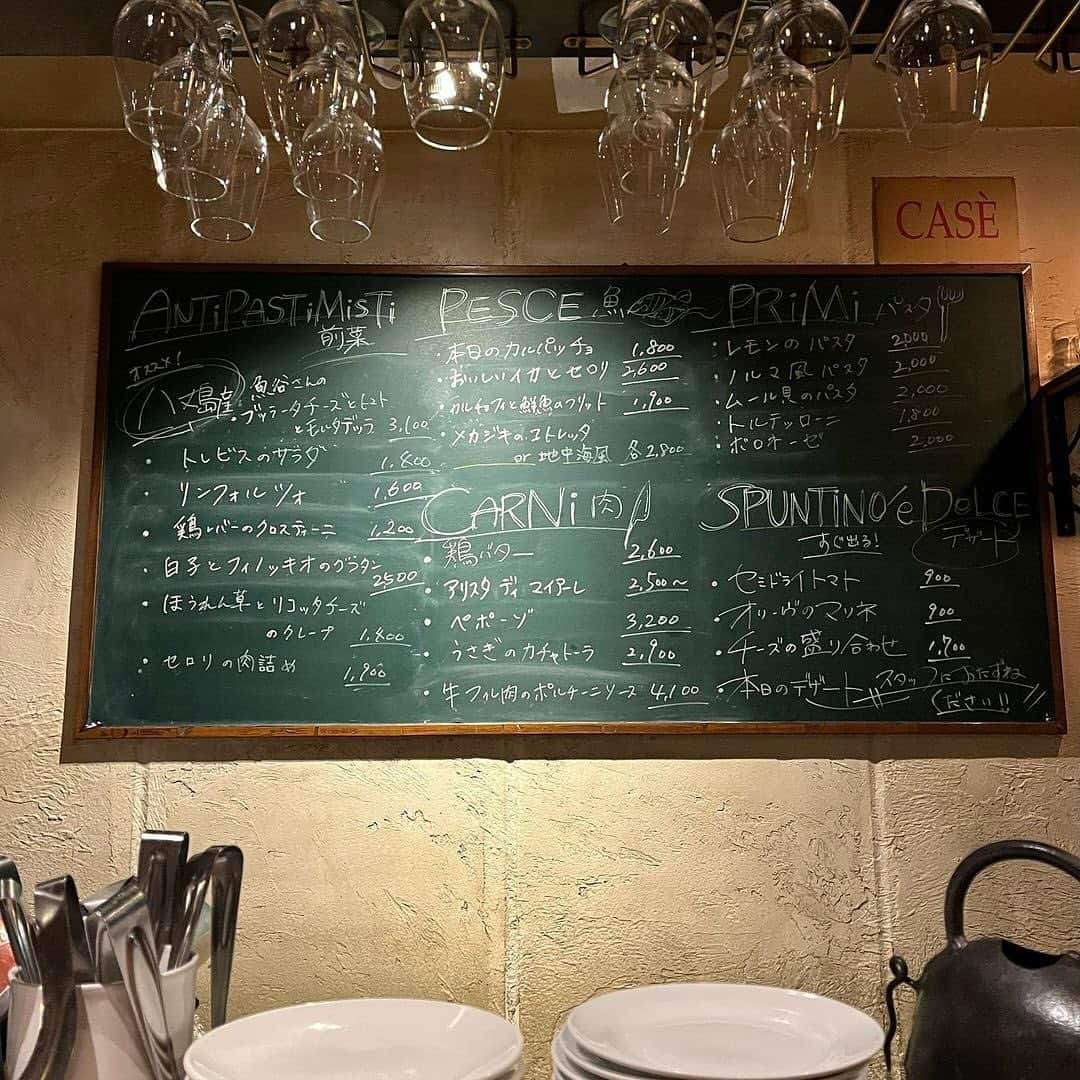 CASÈ
ANTiPASTiMiSTi
前菜
オススメ!
八丈島産 魚谷さんの
・ブッラータチーズとトマト
とモルタデッラ 3,100
・トレビスのサラダ 1,800
・リンフォルツォ 1,600
・鶏レバーのクロスティーニ 1,200
・白子とフィノッキオのグラタン
2500
・ほうれん草とリコッタチーズ
のクレープ 1,800
・セロリの肉詰め 1,900
PESCE 魚
・本日のカルパッチョ 1,800
・おいしいイカとセロリ 2,600
・カルチョフィと鮮魚のフリット 1,900
・メカジキのコトレッタ
or 地中海風 各2,800
CARNi 肉
・鶏バター 2,600
・アリスタ ディ マイアーレ 2,500~
・ペポーゾ 3,200
・うさぎのカチャトーラ 2,900
・牛フィレ肉のポルチーニソース 4,100
PRiMi パスタ
・レモンのパスタ 2,000
・ノルマ風パスタ 2,000
・ムール貝のパスタ 2,000
・トルテッローニ 1,800
・ボロネーゼ 2,000
SPUNTiNO e DOLCE
すぐ出る! デザート
・セミドライトマト 900
・オリーヴのマリネ 900
・チーズの盛り合わせ 1,700
・本日のデザート スタッフにおたずね
ください!!